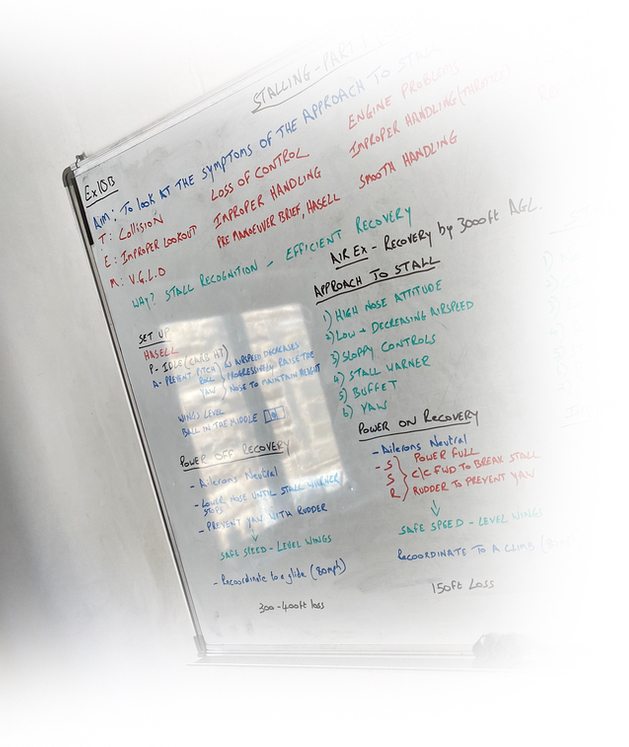 STALLING - PART 1
Ex10B
Aim: To LOOK AT THE SYMPTOMS OF THE APPROACH TO STALL
T: Collision LOSS OF CONTROL ENGINE PROBLEMS
E: IMPROPER LOOKOUT IMPROPER HANDLING IMPROPER HANDLING (THROTTLE)
M: V.G.L.O PRE MANOEUVER BRIEF, HASELL SMOOTH HANDLING
WHY? STALL RECOGNITION - EFFICIENT RECOVERY
AIR EX - RECOVERY by 3000ft AGL.
SET UP
HASELL
P- IDLE (CARB HT)
A- PREVENT PITCH AS AIRSPEED DECREASES
ROLL PROGRESSIVELY RAISE THE
YAW NOSE TO MAINTAIN HEIGHT
WINGS LEVEL
BALL IN THE MIDDLE
APPROACH TO STALL
1) HIGH NOSE ATTITUDE
2) LOW + DECREASING AIRSPEED
3) SLOPPY CONTROLS
4) STALL WARNER
5) BUFFET
6) YAW
POWER OFF RECOVERY
- Ailerons Neutral
- LOWER NOSE UNTIL STALL WARNER
STOPS
- PREVENT YAW WITH RUDDER
SAFE SPEED - LEVEL WINGS
- Recoordinate to a glide (80mph)
300-400ft loss
POWER ON RECOVERY
- Ailerons Neutral
- S POWER FULL
S C/C FWD TO BREAK STALL
R RUDDER TO PREVENT YAW
SAFE SPEED - LEVEL WINGS
RECOORDINATE TO A CLIMB
150ft Loss